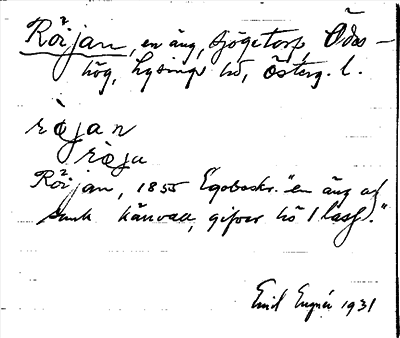 Röjan, en äng, Sjögetorp, Ödes-
hög, Lysings hd, Österg. l.
ròjan
ròja
Röjan, 1855 Egobeskr. "en äng af
sank hårdvall, gifver hö 1 lass."
Emil Engnér 1931